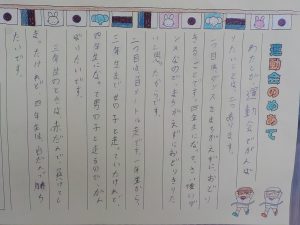 運動会のめあて
わたしが運動会でがんば
りたいことは、二つあります。
一つ目はダンスをまちがえずにおどり
きることです。四年生になって、さい後のダ
ンスなので、まちがえずにおどりきりた
いと思ったからです。
二つ目は八十メートル走です。一年生から
三年生まで女の子と走っていたけれど、
四年生になって男の子と走るので、がん
ばりたいです。
三年生のときは赤だんで、負けてし
まったけれど、四年生は白だんで勝ち
たいです。